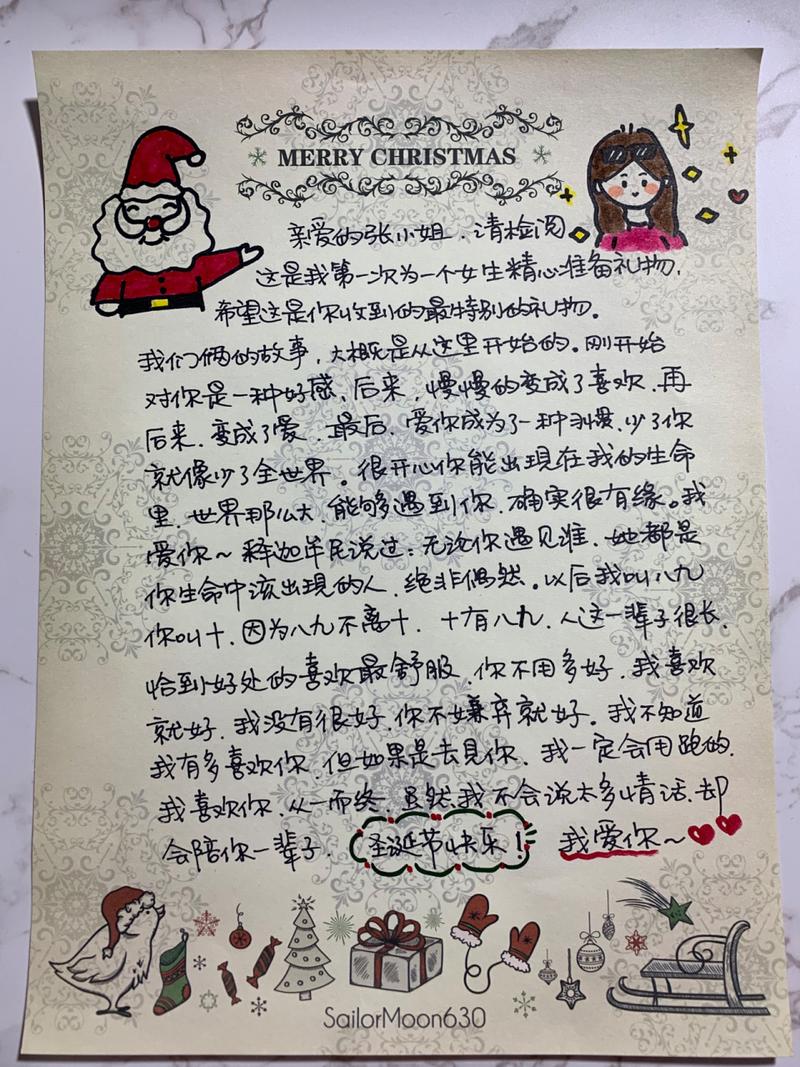 MERRY CHRISTMAS
亲爱的张小姐，请检阅
这是我第一次为一个女生精心准备礼物，
希望这是你收到的最特别的礼物。
我们俩的故事，大概是从这里开始的。刚开始
对你是一种好感，后来，慢慢的变成了喜欢，再
后来，变成了爱，最后，爱你成为了一种习惯，少了你
就像少了全世界。很开心你能出現在我的生命
里，世界那么大，能够遇到你，确实很有缘。我
爱你~释迦牟尼说过：无论你遇见谁，她都是
你生命中该出現的人，绝非偶然。以后我叫八九
你叫十，因为八九不离十，十有八九，人这一辈子很长，
恰到好处的喜欢最舒服，你不用多好，我喜欢
就好，我没有很好，你不嫌弃就好。我不知道
我有多喜欢你，但如果是去見你，我一定会用跑的，
我喜欢你，从一而终，虽然我不会说太多情话，却
会陪你一辈子，圣诞节快乐！我爱你~
SailorMoon630